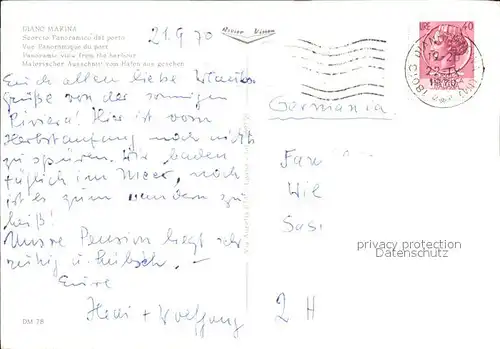 DIANO MARINA
Scorcio Panoramico dal porto
Vue Panoramique du port
Panoramic view from the harbour
Malerischer Ausschnitt von Hafen aus gesehen
21.9.70
LIRE 40
Euch allen liebe
Grüße von der sonnigen
Riviera! Hier ist vom
Herbstanfang noch nichts
zu spüren. Wir baden
täglich im Meer, noch
ist es zum wandern zu
heiß!
Unsre Pension liegt sehr
ruhig u. hübsch. –
Eure
Heni + Wolfgang
DM 78
Germania
Fam
Wil
Sas
2 H
privacy protection
Datenschutz